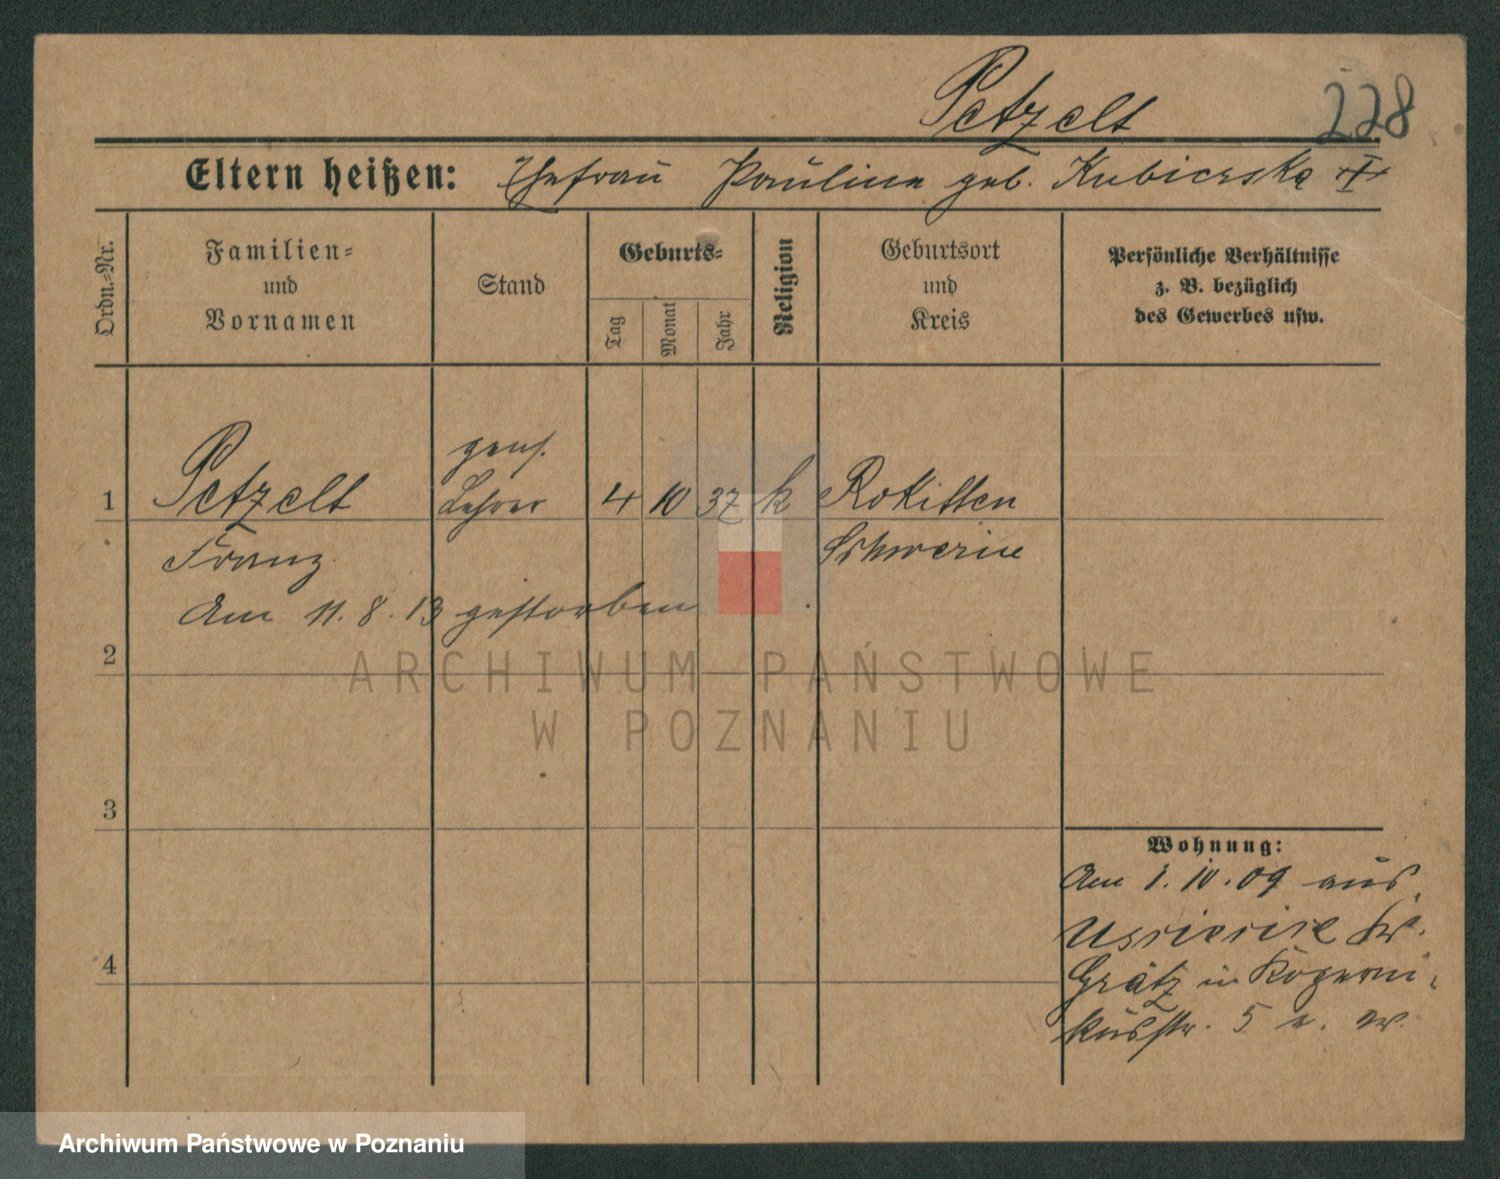 Petzelt 228
Eltern heißen: Ehefrau Pauline geb. Kubierska
Ordn.-Nr.
Familien-
und
Vornamen
Stand
Geburts-
Tag
Monat
Jahr
Religion
Geburtsort
und
Kreis
Persönliche Verhältnisse
z. B. bezüglich
des Gewerbes usw.
pens.
1 Petzelt Lehrer 4 10 37 k Rokitten
Franz Schwerin
Am 11.8.13 gestorben
2
ARCHIWUM PAŃSTWOWE
W POZNANIU
3
Wohnung:
Am 1.10.09 aus
Kr.
4
Grätz in Koperni-
kusstr. 5
Archiwum Państwowe w Poznaniu